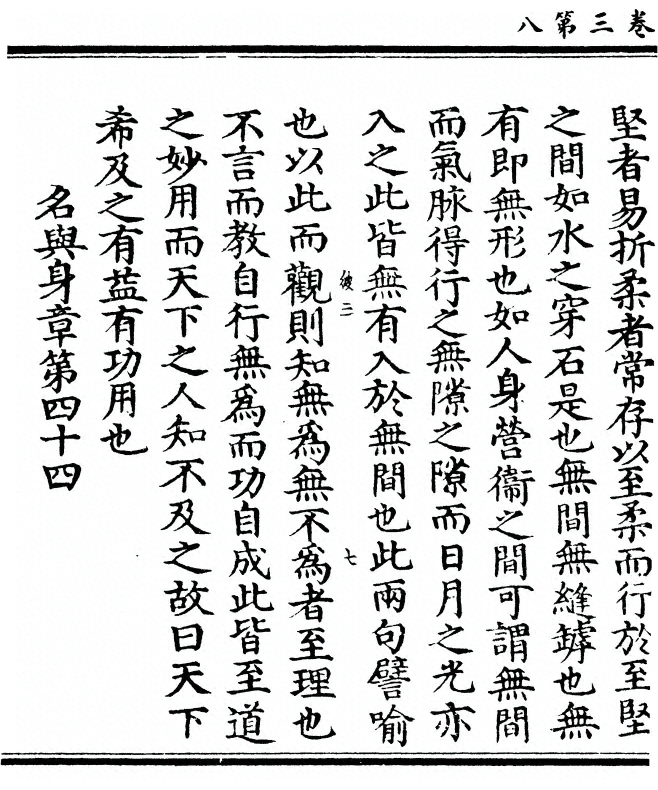 卷三第八
堅者易折柔者常存以至柔而行於至堅
之間如水之穿石是也無間無縫罅也無
有即無形也如人身營衞之間可謂無間
而氣脉得行之無隙之隙而日月之光亦
入之此皆無有入於無間也此兩句譬喻
彼三
七
也以此而觀則知無為無不為者至理也
不言而教自行無為而功自成此皆至道
之妙用而天下之人知不及之故曰天下
希及之有益有功用也
名與身章第四十四